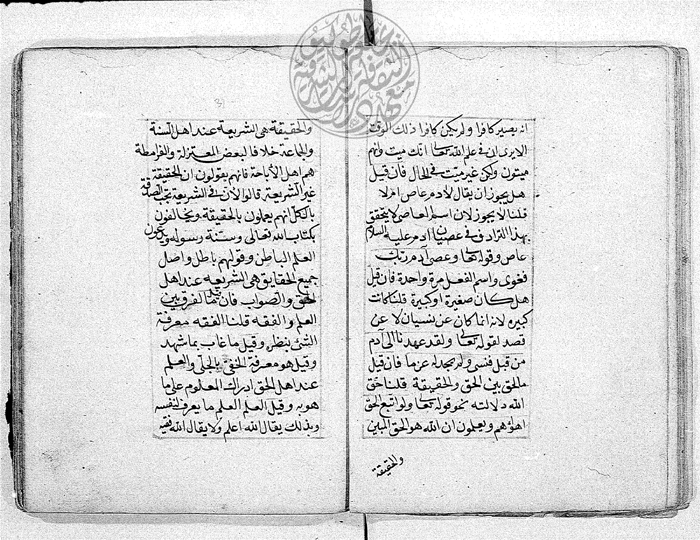 انه يصير كافرا ولم يكن كافرا ذلك الوقت
الا يرى ان في علم الله تعالى انك ميت وانهم
ميتون ولكن غير ميت في الحال فان قيل
هل يجوز ان يقال لادم عاص ام لا
قلنا لا يجوز لان اسم العاص لا يتحقق
بهذا في عصيان ادم عليه السلام
عاص وقوله تعالى وعصى آدم ربه
فغوى واسم الفعل مرة واحدة فان قيل
هل كان صغيرة او كبيرة قلنا كانت
كبيرة لانه انما كان عن نسيان لا عن
قصد لقوله تعالى ولقد عهدنا الى آدم
من قبل فنسي ولم نجد له عزما فان قيل
ما الفرق بين الحق والحقيقة قلنا حق
الله دلالته نحو قوله تعالى ولو اتبع الحق
اهواءهم ويعلمون ان الله هو الحق المبين
والحقيقة
والحقيقة هي الشريعة عند اهل السنة
والجماعة خلافا لبعض المعتزلة والقرامطة
هم اهل الاباحة فانهم يقولون ان الحقيقة
غير الشريعة قالوا الآن في الشريعة يجب الصدقة
بالكل انهم يعلون بالحقيقة ويخالفون
بكتاب الله تعالى وسنة رسوله ويدعون
العلم الباطن وقولهم باطل واصل
جميع الحقايق هي الشريعة عند اهل
الحق والصواب فان قيل ما الفرق بين
العلم والفقه قلنا الفقه معرفة
الشئ بنظر وقيل ما غاب بما شهد
وقيل هو معرفة الخفي بالجلي والعلم
عند اهل الحق ادراك المعلوم على ما
هو به وقيل العلم العلم ما يعرف لنفسه
وبذلك يقال الله اعلم ولا يقال الله فقيه